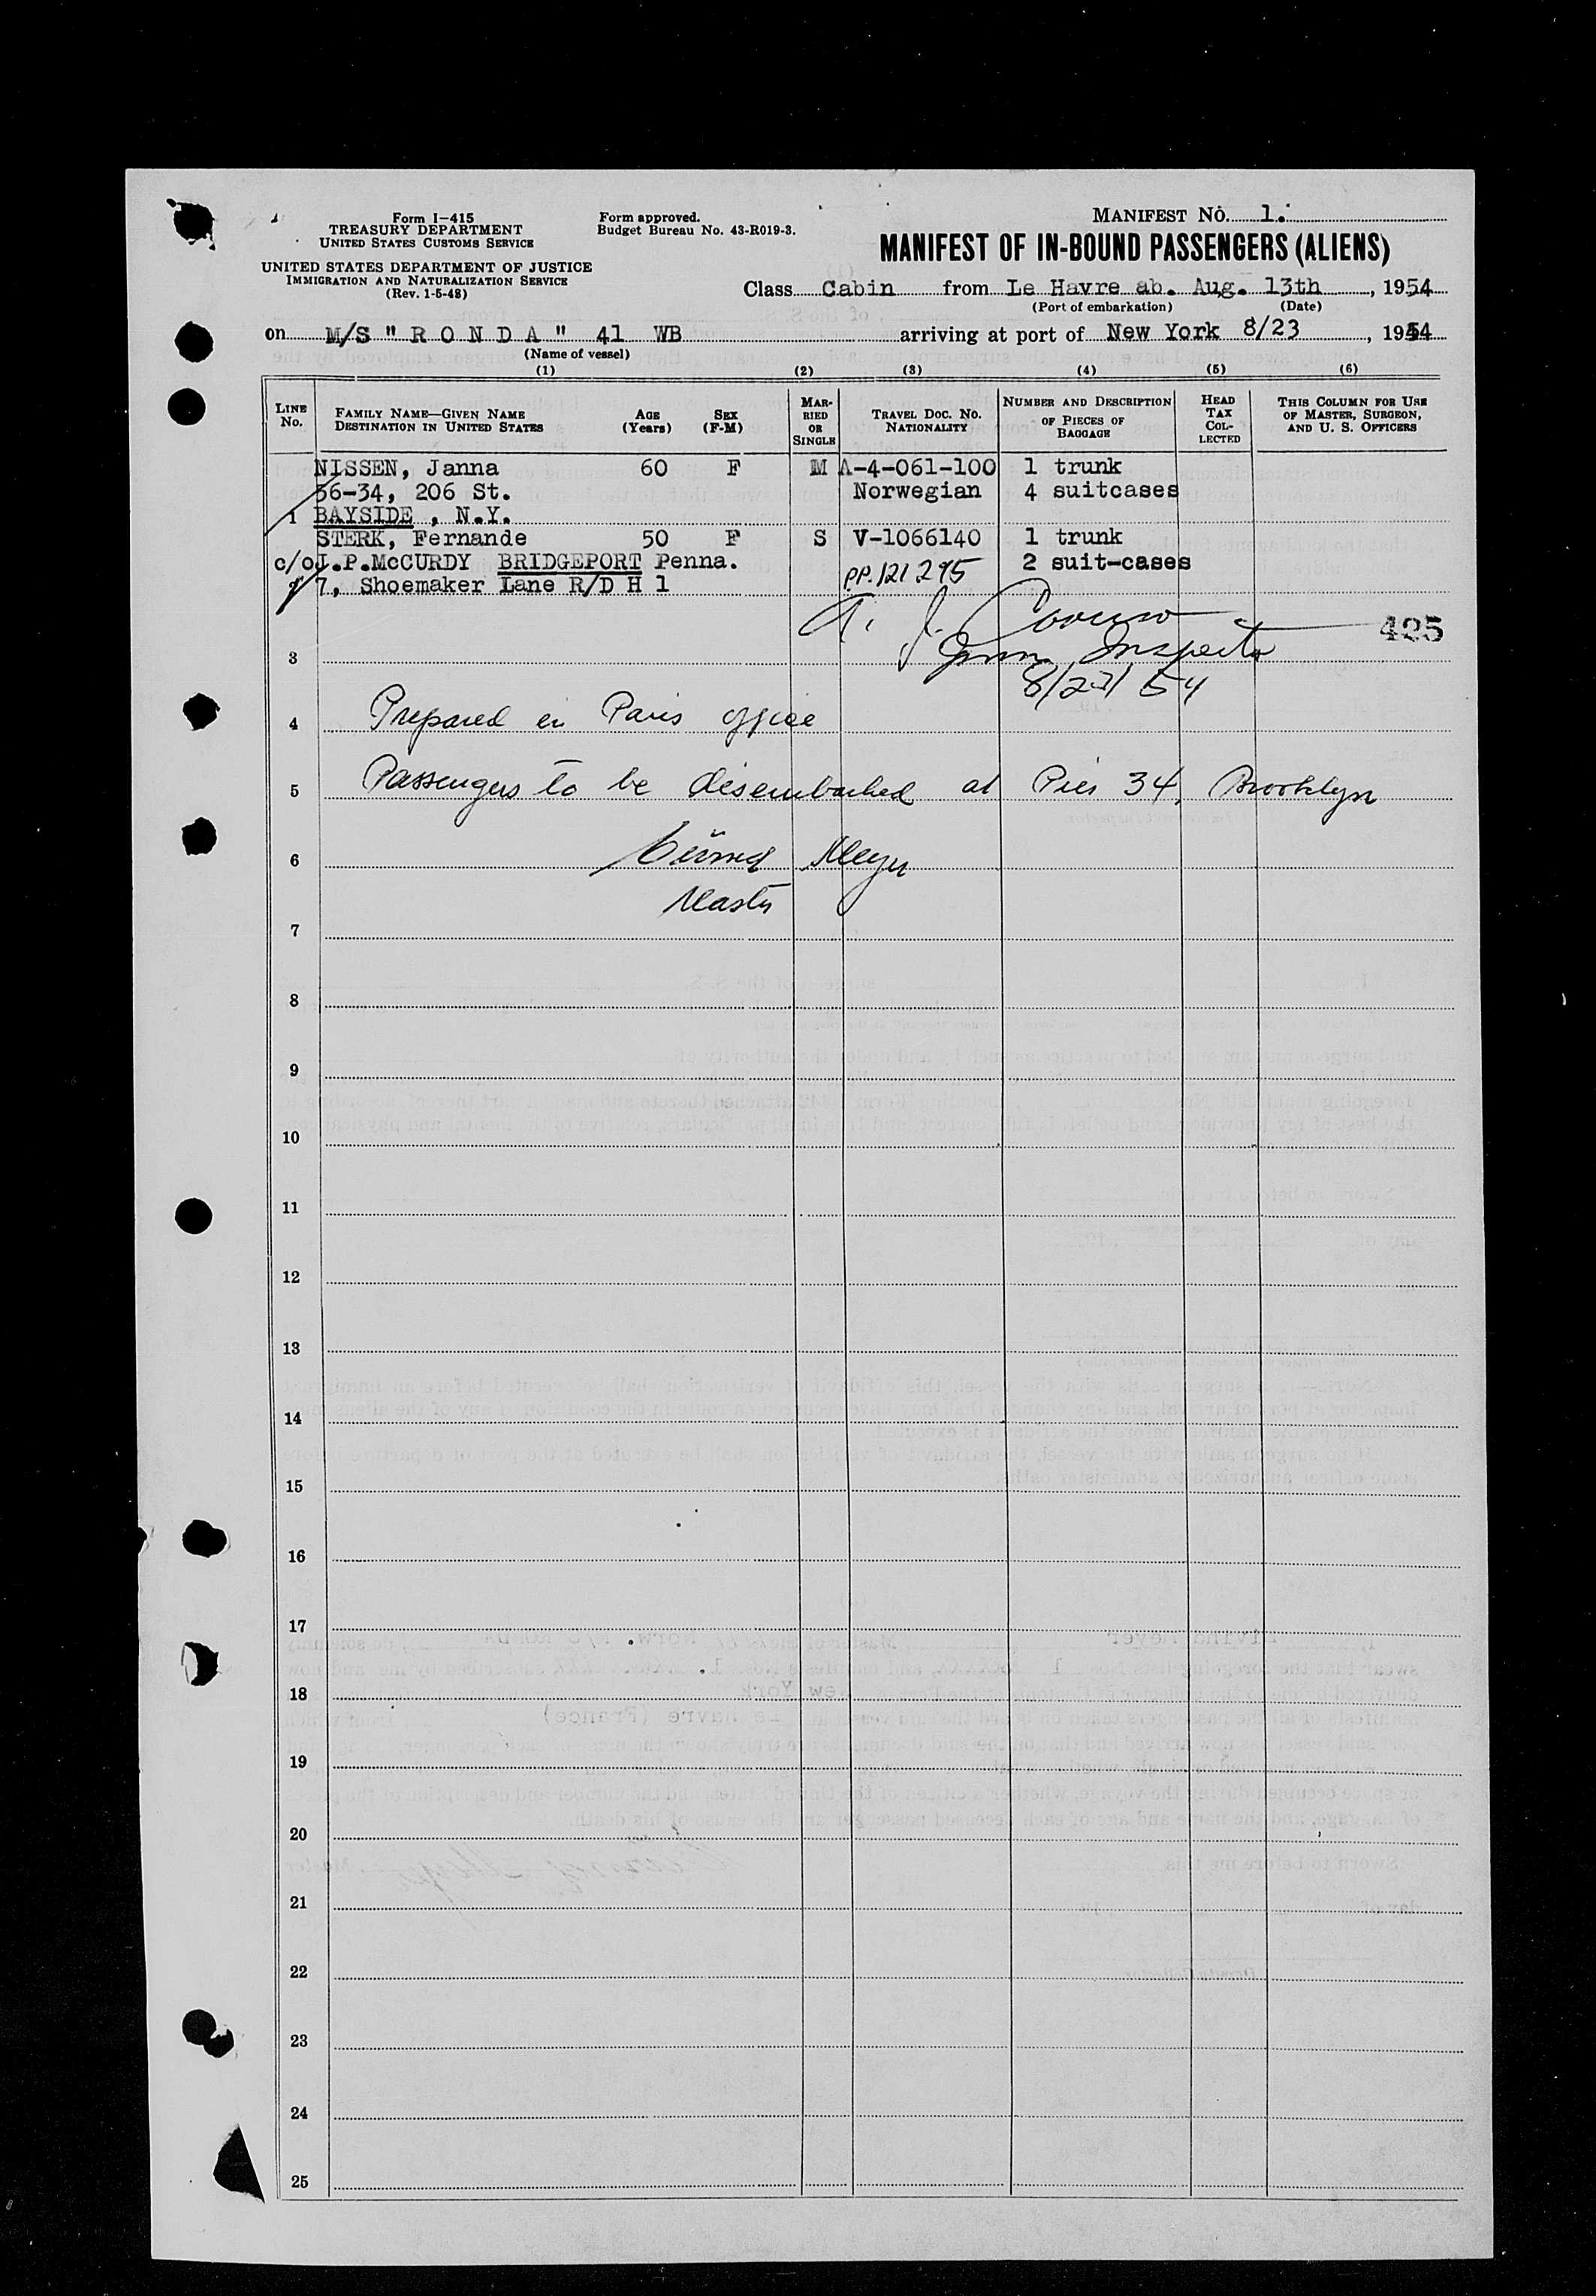 Form I-415
TREASURY DEPARTMENT
UNITED STATES CUSTOMS SERVICE
UNITED STATES DEPARTMENT OF JUSTICE
IMMIGRATION AND NATURALIZATION SERVICE
(Rev. 1-5-48)
Form approved.
Budget Bureau No. 43-R019-3.
MANIFEST NO. 1.
MANIFEST OF IN-BOUND PASSENGERS (ALIENS)
Class Cabin from Le Havre ab. Aug. 13th, 1954
(Port of embarkation) (Date)
on M/S "R O N D A" 41 WB arriving at port of New York 8/23, 1954
(Name of vessel)
(1) (2) (3) (4) (5) (6)
LINE No. FAMILY NAME—GIVEN NAME DESTINATION IN UNITED STATES AGE (Years) SEX (F-M) MARRIED OR SINGLE TRAVEL DOC. NO. NATIONALITY NUMBER AND DESCRIPTION OF PIECES OF BAGGAGE HEAD TAX COLLECTED THIS COLUMN FOR USE OF MASTER, SURGEON, AND U. S. OFFICERS
NISSEN, Janna 60 F M A-4-061-100 1 trunk
56-34, 206 St. Norwegian 4 suitcases
1 BAYSIDE , N.Y.
STERK, Fernande 50 F S V-1066140 1 trunk
c/o J.P.McCURDY BRIDGEPORT Penna. PP. 121295 2 suit-cases
7, Shoemaker Lane R/D H 1
A. J.
425
3 Imm Inspector
8/23/54
4 Prepared in Paris office
5 Passengers to be disembarked at Pier 34, Brooklyn
6 Meyer
Master
7
8
9
10
11
12
13
14
15
16
17
18
19
20
21
22
23
24
25